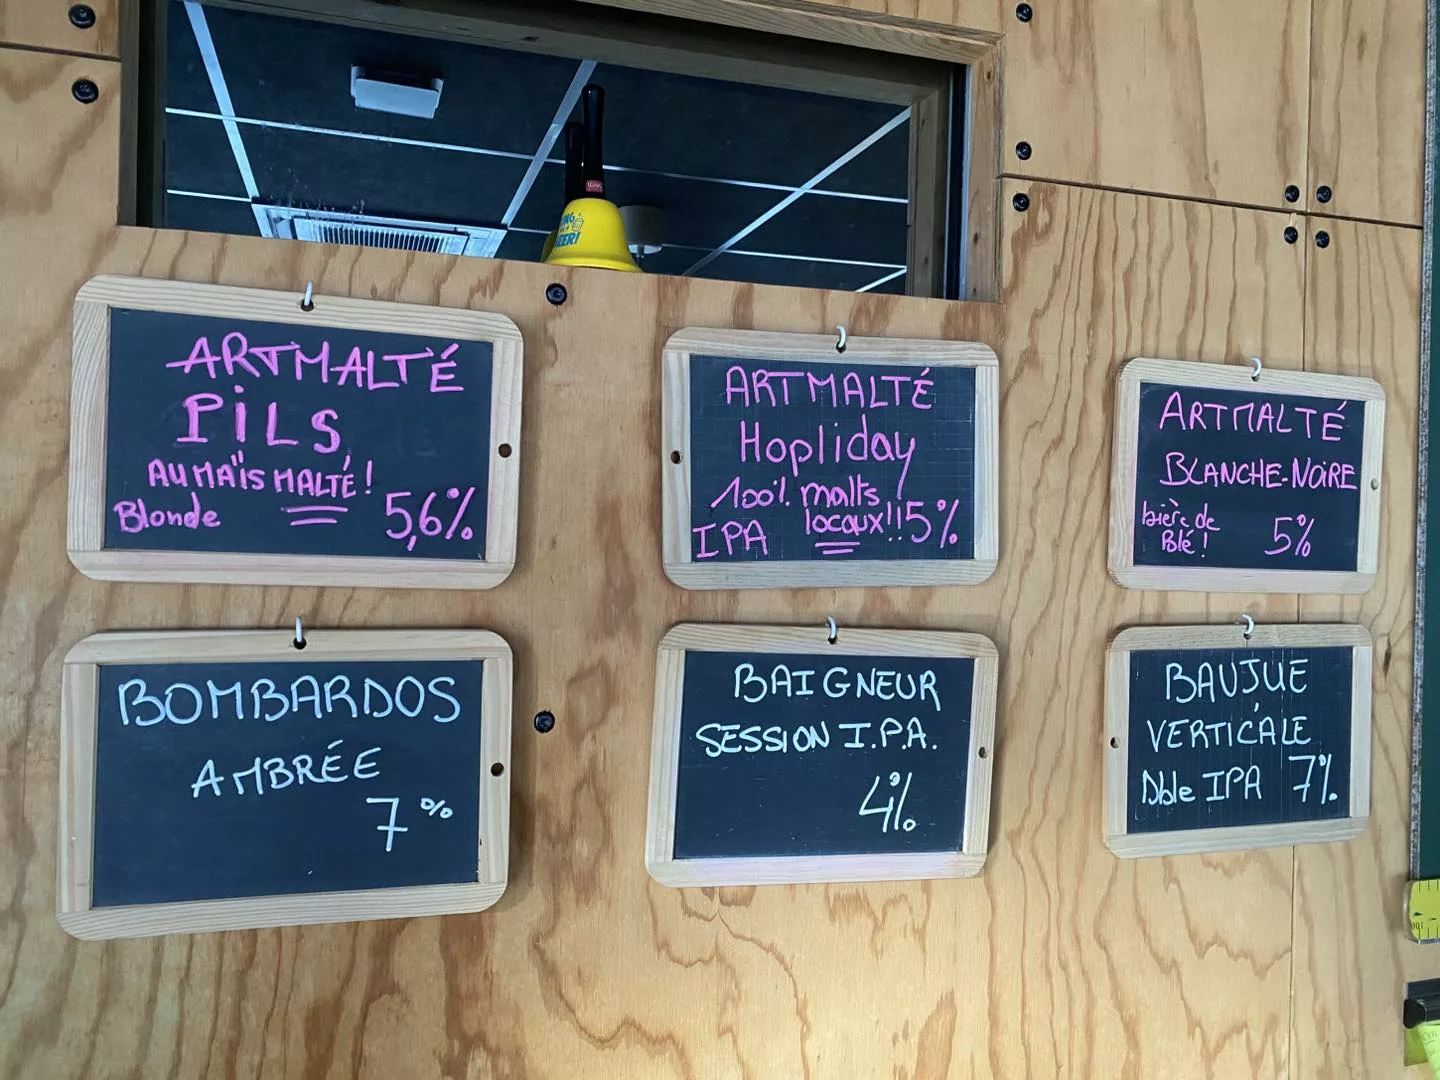 ARTMALTÉ
PILS
AU MAÏS MALTÉ !
Blonde 5,6%
ARTMALTÉ
Hopliday
100% malts
locaux!!
IPA 5%
ARTMALTÉ
BLANCHE-NOIRE
bière de
Blé !
5%
BOMBARDOS
AMBRÉE
7%
BAIGNEUR
SESSION I.P.A.
4%
BAUJUE
VERTICALE
Dble IPA 7%